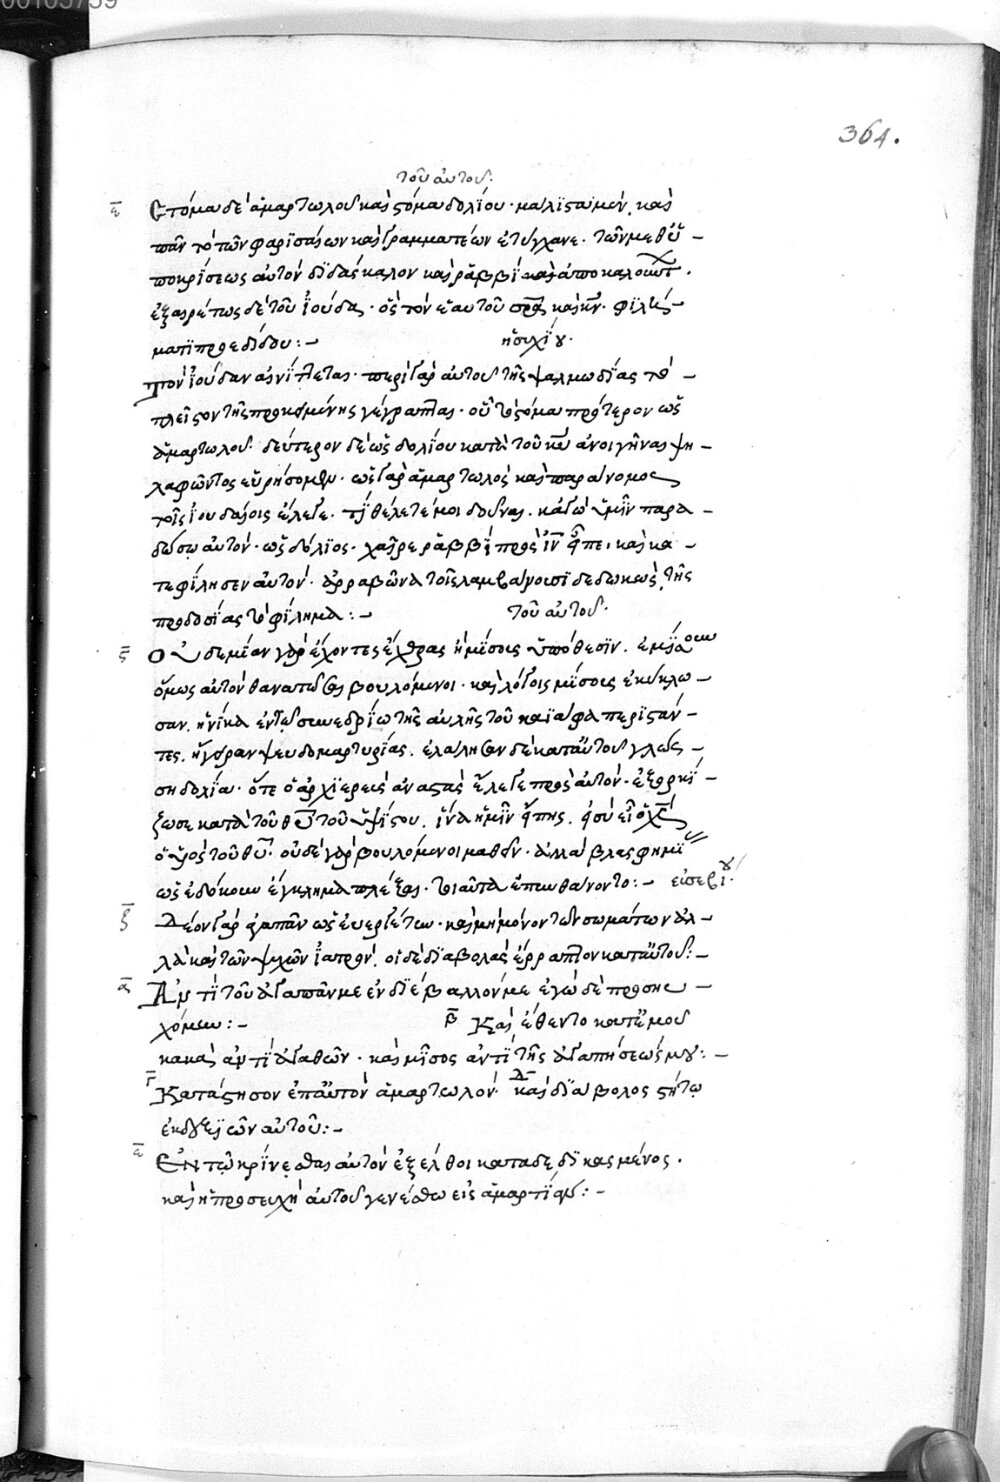 00105759
364.
τοῦ αὐτοῦ·
ε Στόμα δὲ ἁμαρτωλοῦ καὶ στόμα δολίου· μάλιστα μὲν καὶ
πᾶν τὸ τῶν φαρισαίων καὶ γραμματέων ἐτύγχανε· τῶν μεθ' ὑ-
ποκρίσεως αὐτὸν διδάσκαλον καὶ ῥαββὶ καὶ ἀποκαλούντ.
ἐξαιρέτως δὲ τοῦ ἰούδα· ὃς τὸν ἑαυτοῦ πρα καὶ κν· φιλή-
ματι προεδίδου:- ἡσυχίου·
Τὸν ἰούδαν αἰνίττεται· περὶ γὰρ αὐτοῦ τῆς ψαλμωδίας τὸ-
πλεῖστον τῆς προκειμένης γέγραπται· οὗ τὸ στόμα πρότερον ὡς
ἁμαρτωλοῦ· δεύτερον δὲ ὡς δολίου κατὰ τοῦ κυ ἀνοιγῆναι ψη-
λαφῶντες εὑρήσομεν· ὡς γὰρ ἁμαρτωλὸς καὶ παράνομος
τοῖς ἰουδαίοις ἔλεγε· τί θέλετέ μοι δοῦναι· κἀγὼ ὑμῖν παρα-
δώσω αὐτόν· ὡς δόλιος· χαῖρε ῥαββὶ πρὸς ιν εἶπε· καὶ κα-
τεφίλησεν αὐτόν· ἀρραβῶνα τοῖς λαμβάνουσι δεδωκὼς τῆς
προδοσίας τὸ φίλημα:- τοῦ αὐτοῦ·
ς Οὐδεμίαν γὰρ ἔχοντες ἔχθρας ἢ μίσους ὑπόθεσιν· ἐμίσουν
ὅμως αὐτὸν θανατῶσαι βουλόμενοι· καὶ λόγοις μίσους ἐκύκλω-
σαν· ἡνίκα ἐν τῷ συνεδρίω τῆς αὐλῆς τοῦ καϊάφα περιστάν-
τες· ἤγειραν ψευδομαρτυρίας· ἐλάλησαν δὲ κατ' αὐτοῦ γλώσ-
ση δολία· ὅτε ὁ ἀρχιερεὺς ἀναστὰς ἔλεγε πρὸς αὐτόν· ἐξορκί-
ζω σε κατὰ τοῦ θυ τοῦ ὑψίστου· ἵνα ἡμῖν εἴπης· εἰ σὺ εἶ ὁ χς
ὁ υἱὸς τοῦ θυ· οὐδὲ γὰρ βουλόμενοι μαθεῖν· ἀλλὰ βλασφημί
ὡς ἐδόκουν ἔγκλημα πλέξαι· τοιαῦτα ἐπυνθάνοντο:- εὐσεβίου·
ζ Δέον γὰρ ἀγαπᾶν ὡς εὐεργέτην· καὶ μὴ μόνον τῶν σωμάτων ἀλ-
λὰ καὶ τῶν ψυχῶν ἰατρόν· οἱ δὲ διαβολὰς ἔρραπτον κατ' αὐτοῦ:-
α Ἀντὶ τοῦ ἀγαπᾶν με ἐνδιέβαλλόν με ἐγὼ δὲ προσηυ-
χόμην:- β Καὶ ἔθεντο κατ' ἐμοῦ
κακὰ ἀντὶ ἀγαθῶν· καὶ μῖσος ἀντὶ τῆς ἀγαπήσεώς μου:-
γ Κατάστησον ἐπ' αὐτὸν ἁμαρτωλόν· δ καὶ διάβολος στήτω
ἐκ δεξιῶν αὐτοῦ:-
ε Ἐν τῷ κρίνεσθαι αὐτὸν ἐξέλθοι καταδεδικασμένος.
καὶ ἡ προσευχὴ αὐτοῦ γενέσθω εἰς ἁμαρτίαν:-